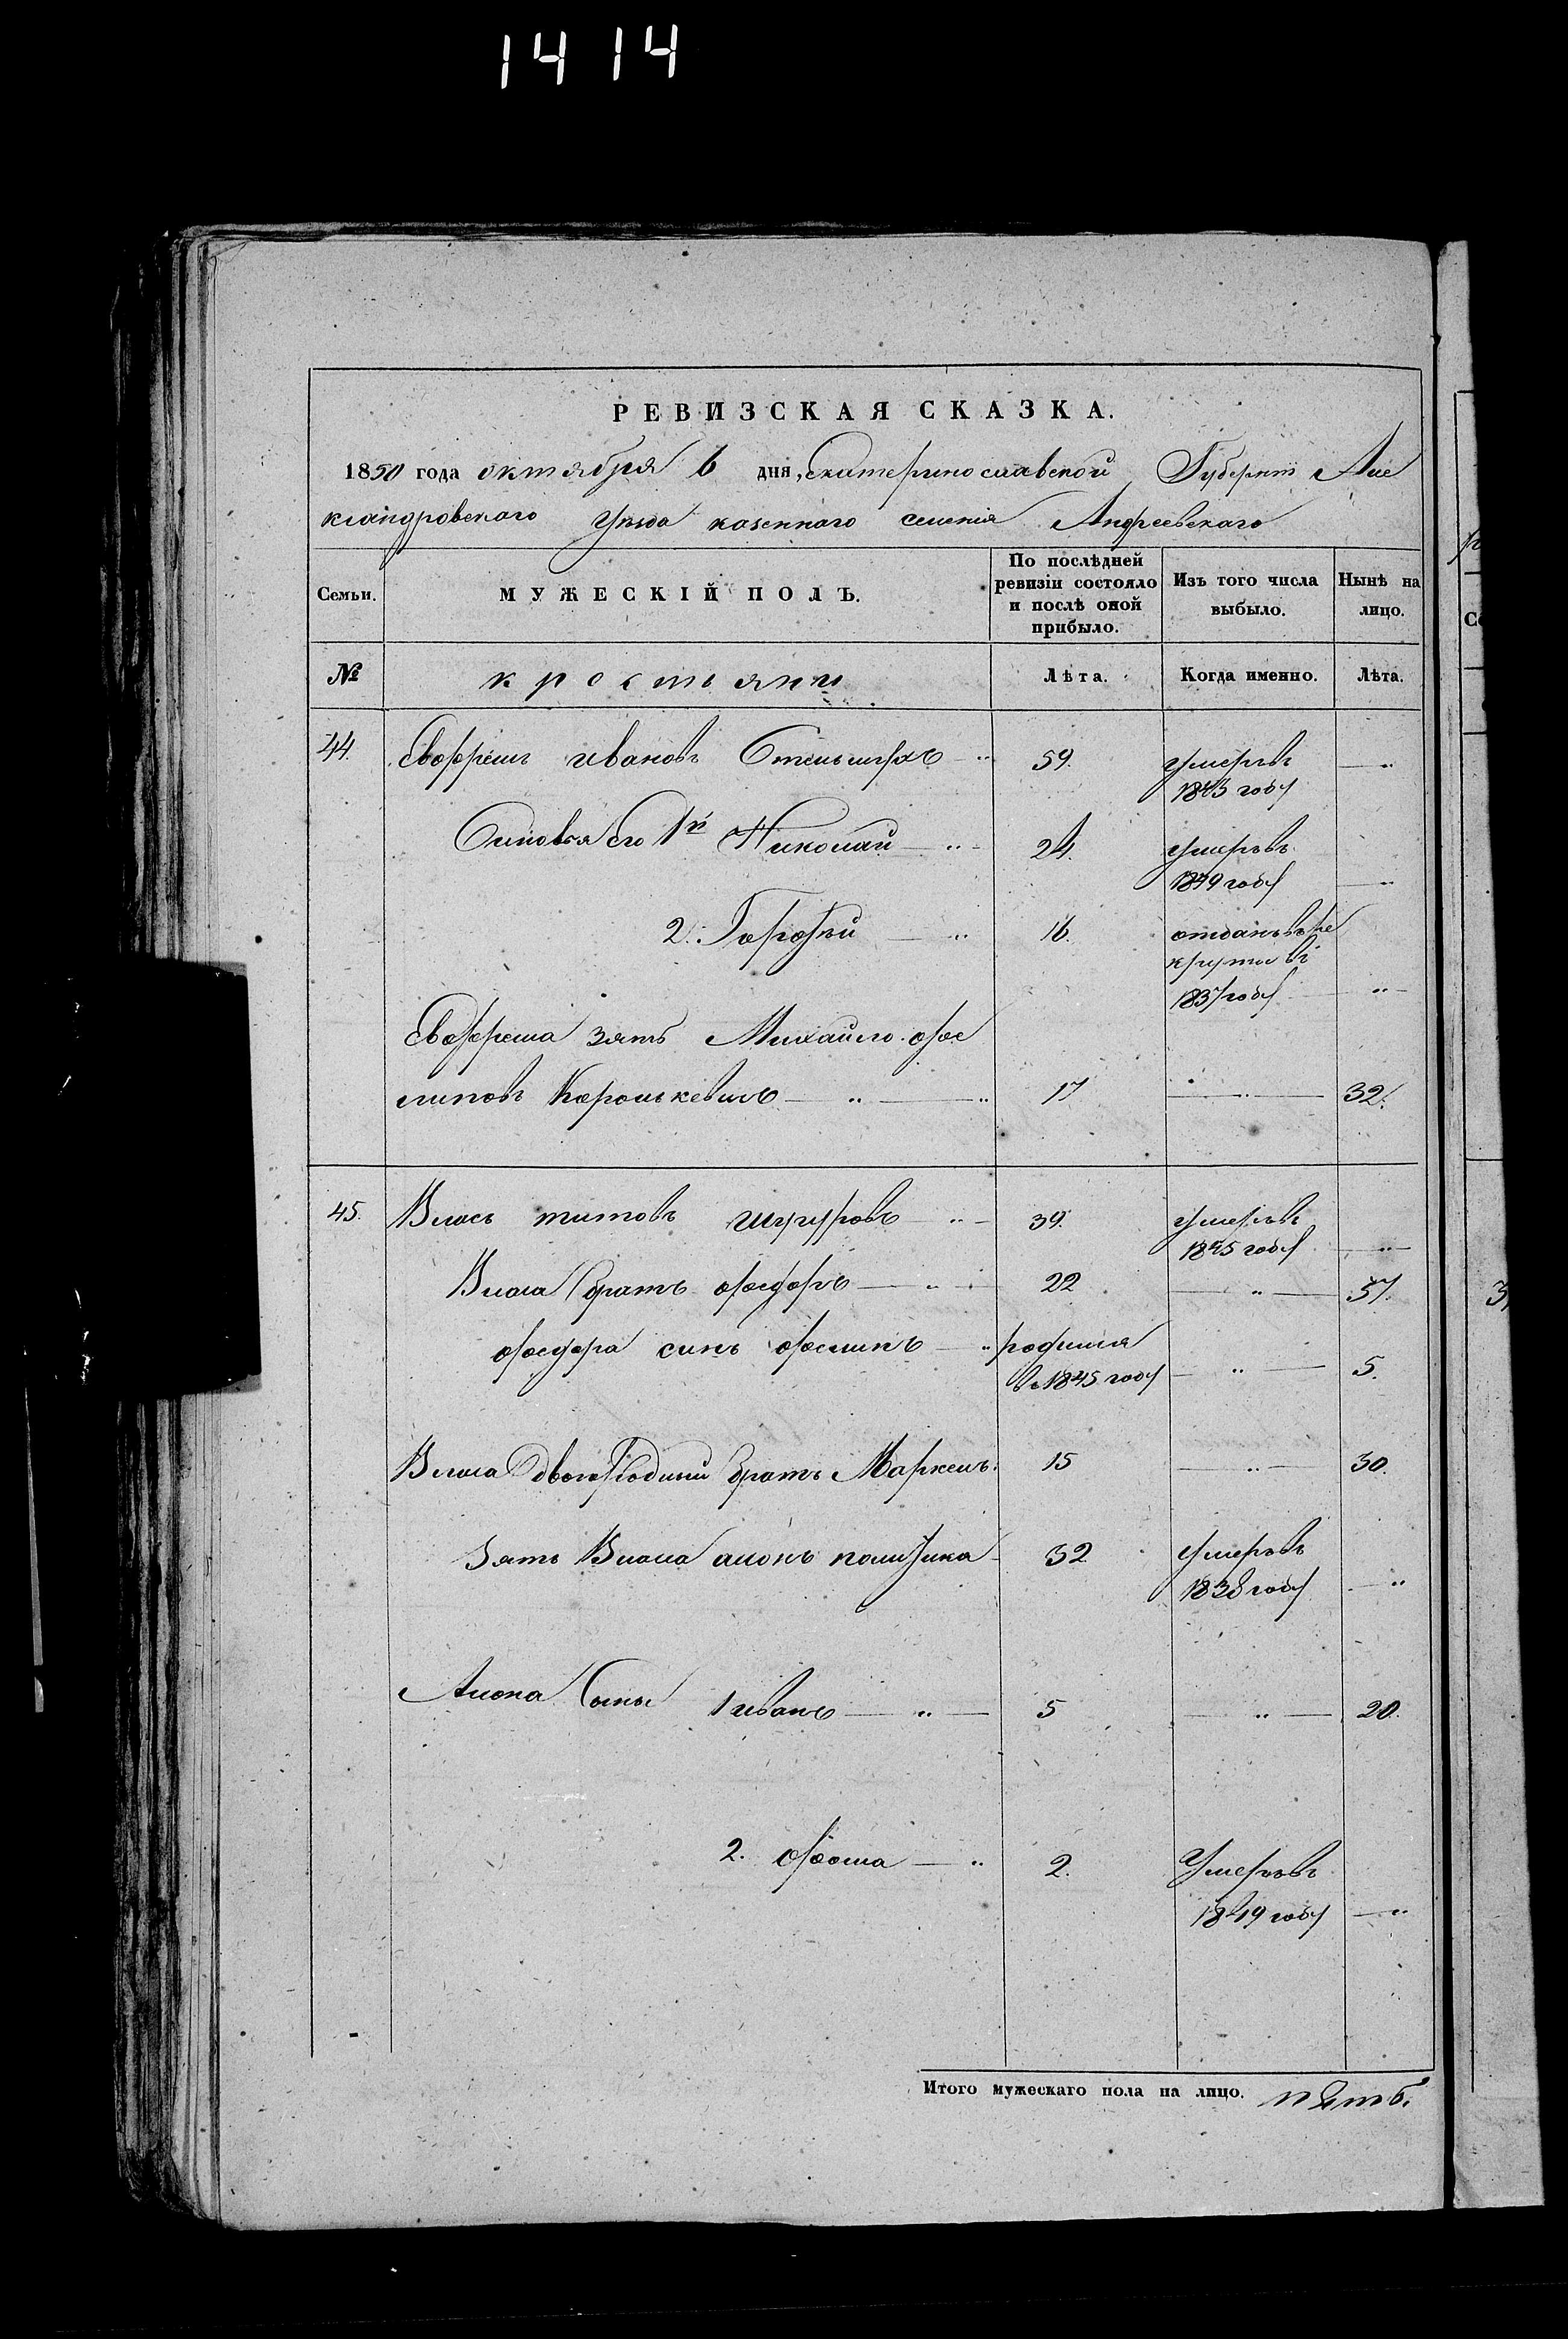 1414
РЕВИЗСКАЯ СКАЗКА.
1850 года октября 6 дня, Екатеринославской Губерніи Але
ксандровскаго Уезда казеннаго селенія Андреевскаго
Семьи. МУЖЕСКІЙ ПОЛЪ. По послѣдней ревизіи состояло и послѣ оной прибыло. Изъ того числа выбыло. Ныне на лицо.
№ крестьяни Лѣта. Когда именно. Лѣта.
44. Ивановъ 59. умеръвъ
1843 году
Синовья Его 1й Николай 24. умеръвъ
1849 году
2. Гордѣй 16. отданъ въ ре
круты въ
1837 году
зять Михайло фи
липовъ 17 32.
45. Власъ титовъ 39. умеръвъ
1845 году
Власа братъ федоръ 22 37.
федора синъ родился
въ 1845 году 5.
Власа Двоюродний братъ Маркелъ. 15 30.
Зять Власа 32 Умеръвъ
1838 году
Сыны 1 иванъ 5 20.
2. фома 2. Умеръвъ
1849 году
Итого мужескаго пола на лицо. пять.